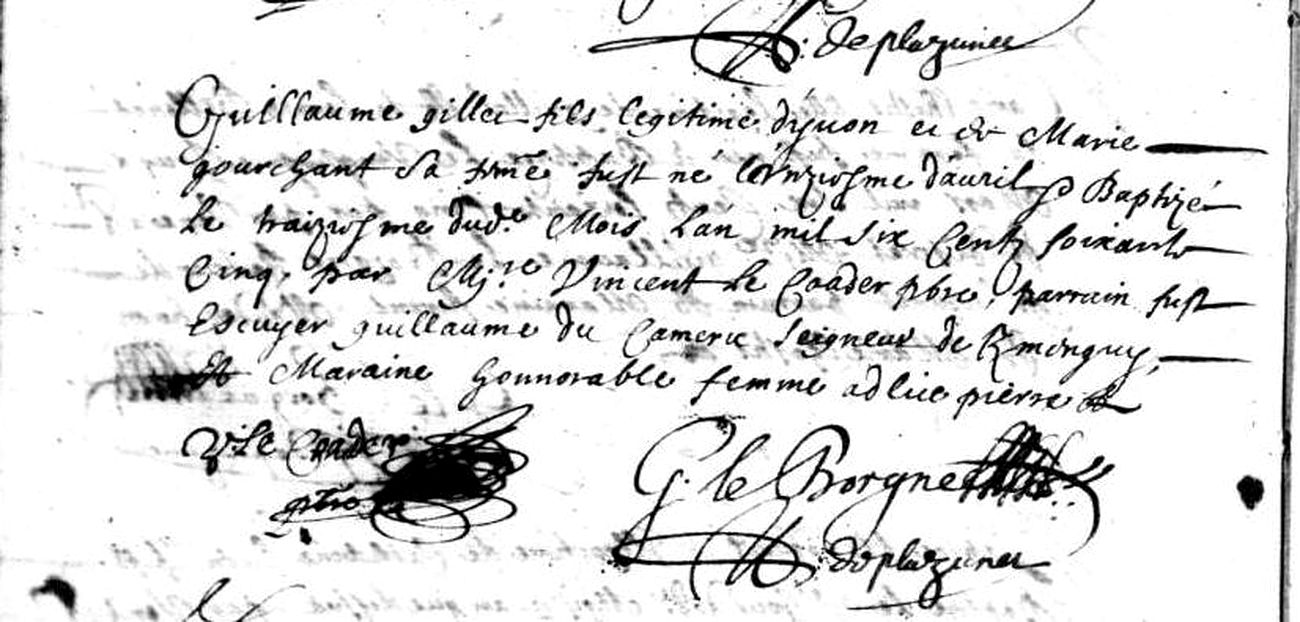 de plazunet
Guillaume gilles fils legitime d'yuon et de Marie
gourchant sa fṁẽ fust né l'ónziesme d'auril & Baptizé
Le traiziesme dud.t Mois L'an mil six Centz soixante
Cinq, par Mis.re Vincent Le Coader pbre, parrain fust
Escuyer guillaume du Cameru Seigneur de Kmenguy,
et Maraine honnorable femme adlice pierre
V: Le Coader
pbre
G. le Borgne
de plazunet